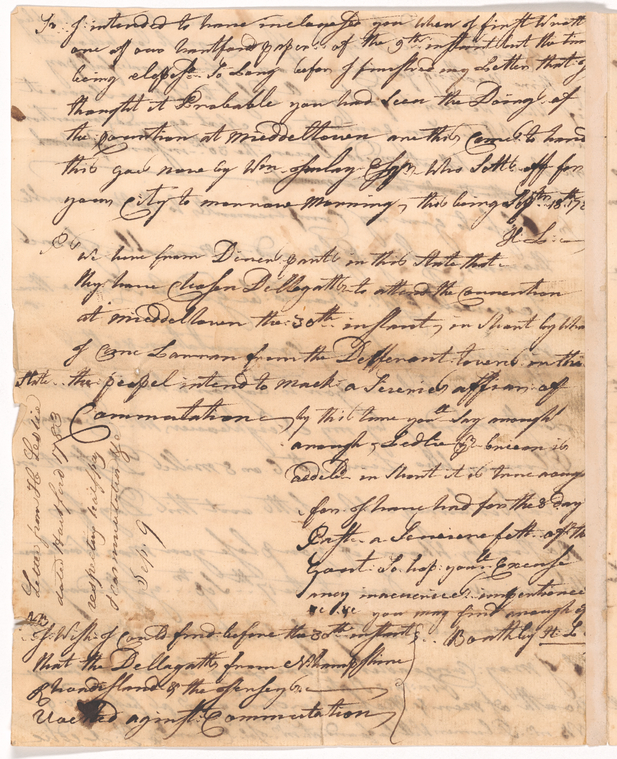 Sr. I intended to have inclosed you when I first Wrott
one of our hartford papers of the 9th instant but the time
being elapst So Long befor I finished my Letter that I
thought it Probable you had Seen the Doings of
the convntion at Middeltown are this Come to hand
this goe now by Wm. Esqr. Who Setts off for
your City to morrow Morning, this being Septm. 18th. 178
H. L:
Ps we here from Diners parts in this State that
they have Chosen Dellagatts to attend the Convention
at Middeltown the 30th. instant, in Short by What
I can Larn from the Defferent towns in this
State the peopel intend to mack a Sereries affair of
Commutation, by this time youl Say anough
anough, Ledlie is
in Short it is true anough
for I have had for the 8 day
Past a Severe fitt of the
Gout So hop youl Excuse
may
&c &c you may find anough of
Boath by H L
I Wish I could find before the 30th instant
that the Dellagatts from N Hampshire
Rhoadesland & the Jerseys &c
Voatted against Commutation
Letter from H Ledlie
dated Hartford 1783
respecting
& commutation &c
Sep. 9